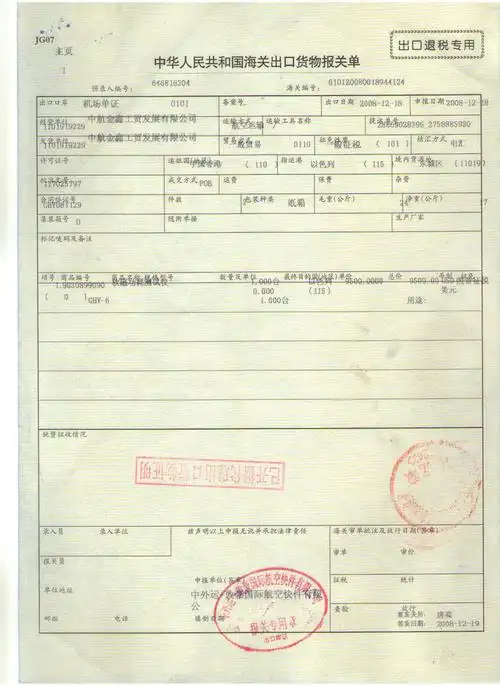 JG07
主页
1
中华人民共和国海关出口货物报关单
出口退税专用
预录入编号: 646816304 海关编号: 010120080018944124
出口口岸 机场单证 0101 备案号 出口日期 2008-12-18 申报日期 2008-12-18
经营单位 中航金鑫工贸发展有限公司 运输方式 航空运输 运输工具名称 提运单号
1101919229 2758885920
发货单位 中航金鑫工贸发展有限公司 贸易方式 一般贸易 0110 征免性质 一般征税 (101) 结汇方式 电汇
1101919229
许可证号 运抵国(地区) 中国香港 (110) 指运港 以色列 (115 境内货源地 东城区 (11019)
批准文号 成交方式 FOB 运费 保费 杂费
117025797
合同协议号 件数 包装种类 纸箱 毛重(公斤) 24 净重(公斤) 17
集装箱号 0 随附单据 生产厂家
标记唛码及备注
项号 商品编号 商品名称、规格型号 数量及单位 最终目的国(地区) 单价 总价 币制 征免
1.9030899090 1.000台 以色列 9500.0000 9500.00 USD 照章征税
( 0 ) GHY-6 0.000 (115) 美元
1.000台 用途:
税费征收情况
已开报代理出口货物证明
录入员 录入单位 兹声明以上申报无讹并承担法律责任 海关审单批注及放行日期(签章)
审单 审价
报关员
征税 统计
申报单位(签章)
单位地址 中外运 国际航空快件有限公
公
查验 放行
邮编 电话 填制日期
报关专用章
签发关员:
签发日期: 2008-12-19